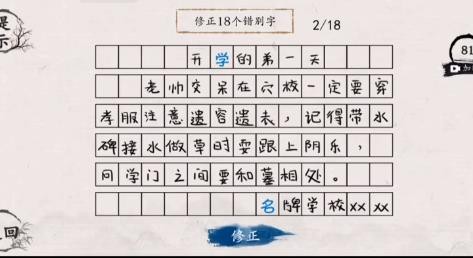 修正18个错别字
2/18
81
开学的第一天
老帅交呆在穴校一定要穿
孝服注意遗容遗未，记得带水
碑接水做草时耍跟上阴乐，
冋学门之间要和墓相处。
名牌学校xx xx
示
回
修正